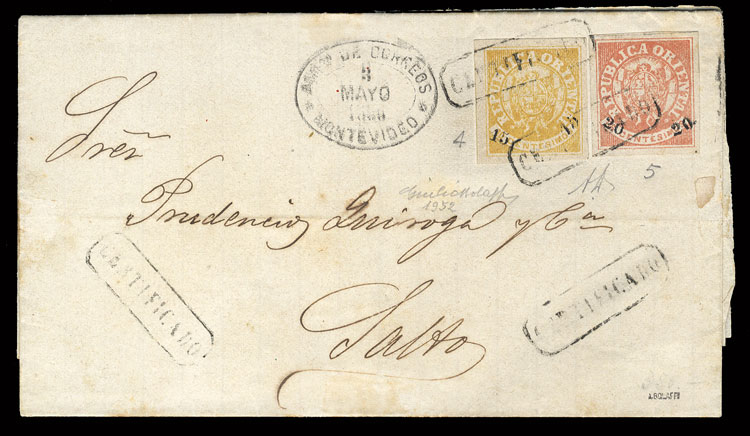 ADMON DE CORREOS
8
MAYO
MONTEVIDEO
CERTIFICADO
REPUBLICA ORIENTAL
15 15
CENTESIMOS
REPUBLICA ORIENTAL
20 20
CENTESIMOS
CERTIFICADO
4
5
Sres
1952
Prudencio Quiroga y Ca
CERTIFICADO
CERTIFICADO
Salto
A.BOLAFFI